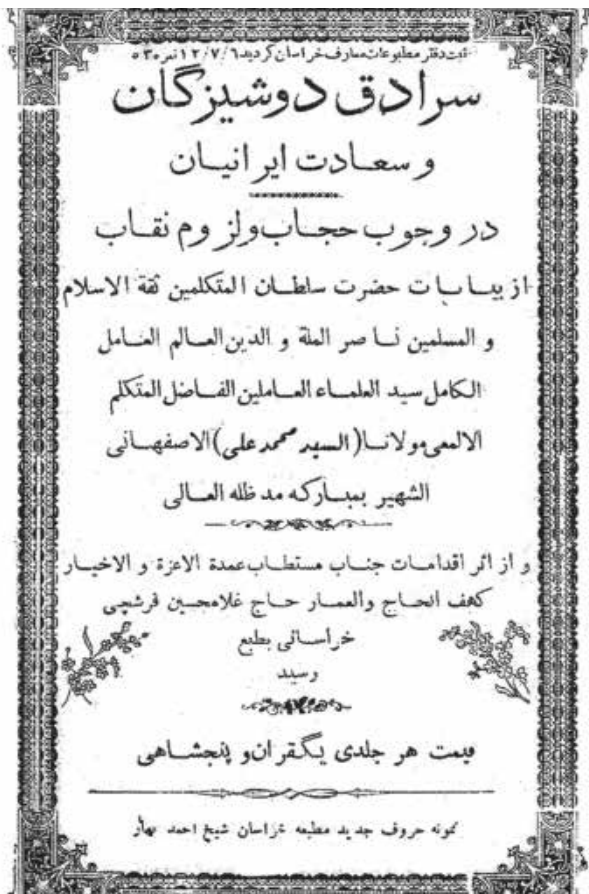 ثبت دفتر مطبوعات معارف خراسان گردید ۱۲/۷/۶ نمره ۵۳۰
سرادق دوشیزگان
و سعادت ایرانیان
در وجوب حجاب ولزوم نقاب
از بیانات حضرت سلطان المتکلمین ثقة الاسلام
و المسلمین ناصر الملة و الدین العالم العامل
الکامل سید العلماء العاملین الفاضل المتکلم
الالمعی مولانا (السید محمد علی) الاصفهانی
الشهیر بمبارکه مد ظله العالی
و از اثر اقدامات جناب مستطاب عمدة الاعزة و الاخیار
کهف الحاج والعمار حاج غلامحسین فرشچی
خراسانی بطبع
رسید
قیمت هر جلدی یکقران و پنجشاهی
نمونه حروف جدید مطبعه خراسان شیخ احمد بهار